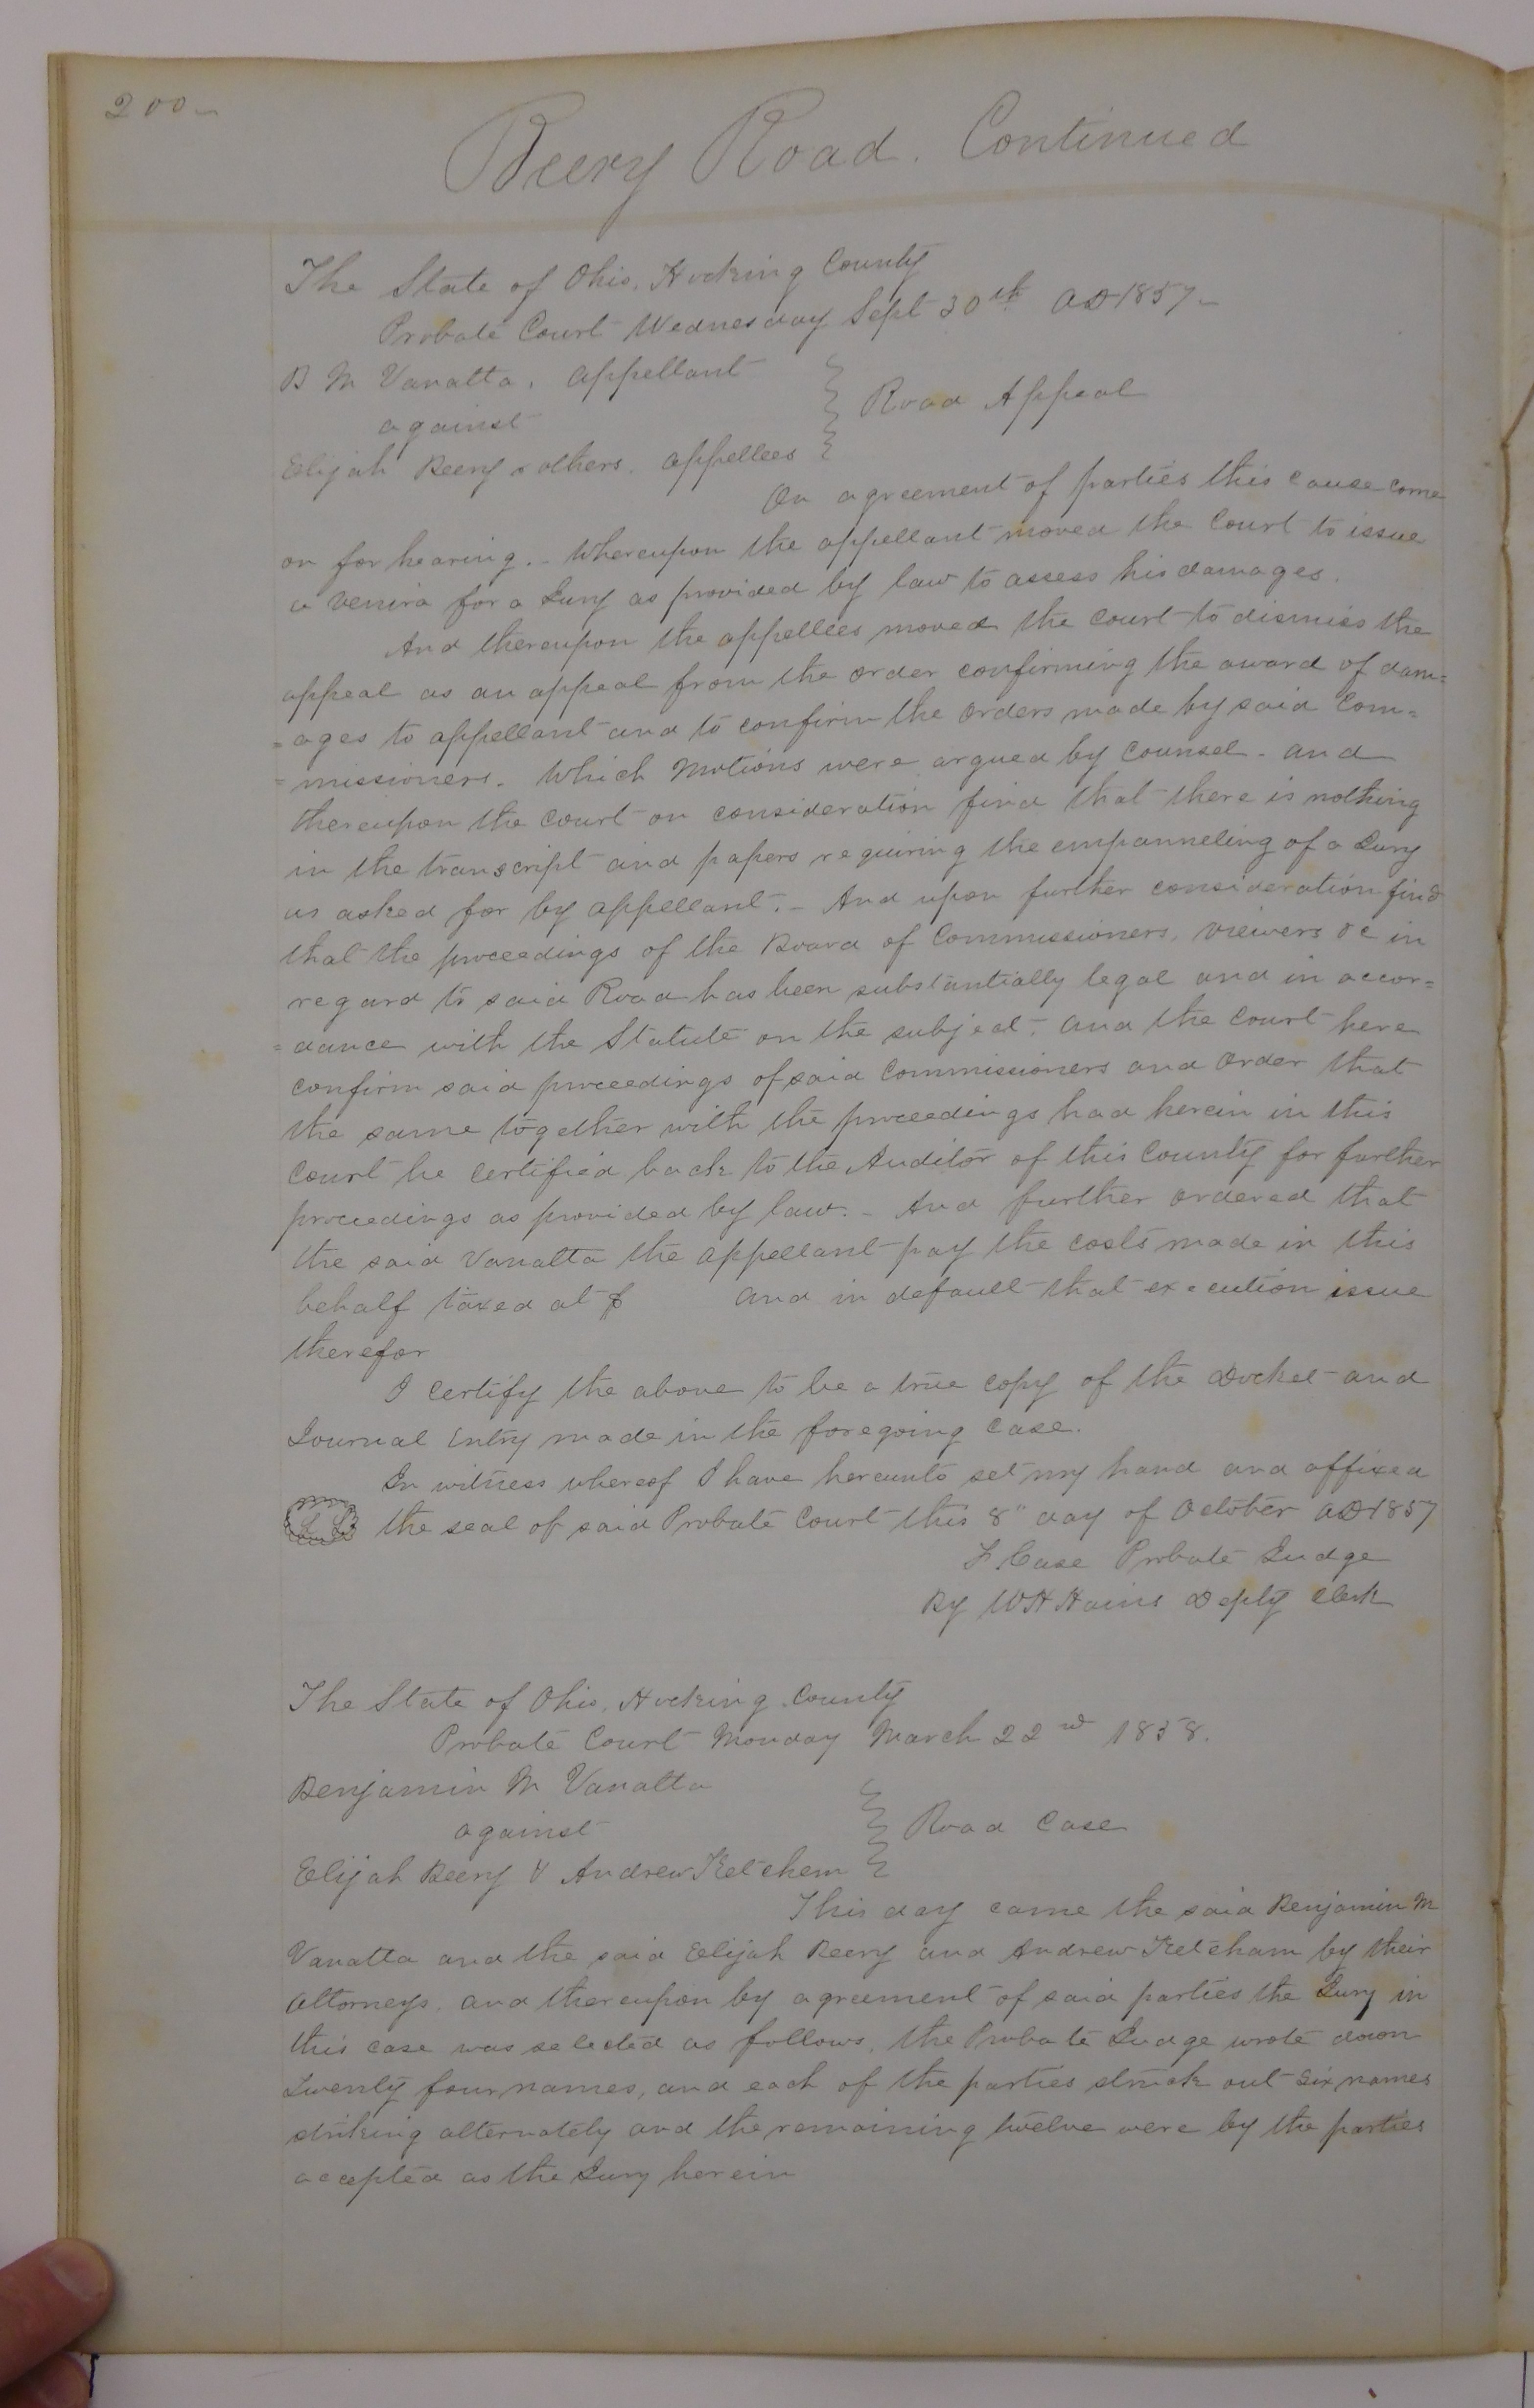 200-
Beery Road. Continued
The State of Ohio, Hocking County
Probate Court Wednesday Sept 30th AD 1857-
B M Vanatta, appellant
against
Road Appeal
Elijah Beery & others. appellees
On agreement of parties this cause come
on for hearing. - Whereupon the appellant moved the Court to issue
a venira for a Jury as provided by law to assess his damages.
And thereupon the appellees moved the court to dismiss the
appeal as an appeal from the order confirming the award of dam=
=ages to appellant and to confirm the orders made by said Com=
=missioners. Which Motions were argued by counsel - and
thereupon the court on consideration find that there is nothing
in the transcript and papers requiring the empanneling of a Jury
as asked for by appellant. - And upon further consideration find
that the proceedings of the Board of Commissioners, viewers &c in
regard to said Road has been substantially legal and in accor=
=dance with the Statute on the subject. and the court here
confirm said proceedings of said Commissioners and order that
the same together with the proceedings had herein in this
Court be certified back to the Auditor of this County for further
proceedings as provided by law. - And further ordered that
the said Vanatta the appellant pay the costs made in this
behalf taxed at $ and in default that execution issue
therefor
I certify the above to be a true copy of the Docket and
Journal Entry made in the foregoing case.
In witness whereof I have hereunto set my hand and affixed
L S the seal of said Probate Court this 8" day of October AD 1857
F Case Probate Judge
By W H Hains Depty Clerk
The State of Ohio, Hocking County
Probate Court Monday March 22nd 1858.
Benjamin M Vanatta
against
Road Case
Elijah Beery & Andrew Ketcham
This day came the said Benjamin M
Vanatta and the said Elijah Beery and Andrew Ketcham by their
attorneys. and thereupon by agreement of said parties the Jury in
this case was selected as follows, the Probate Judge wrote down
Twenty four names, and each of the parties struck out six names
striking alternately and the remaining twelve were by the parties
accepted as the Jury herein